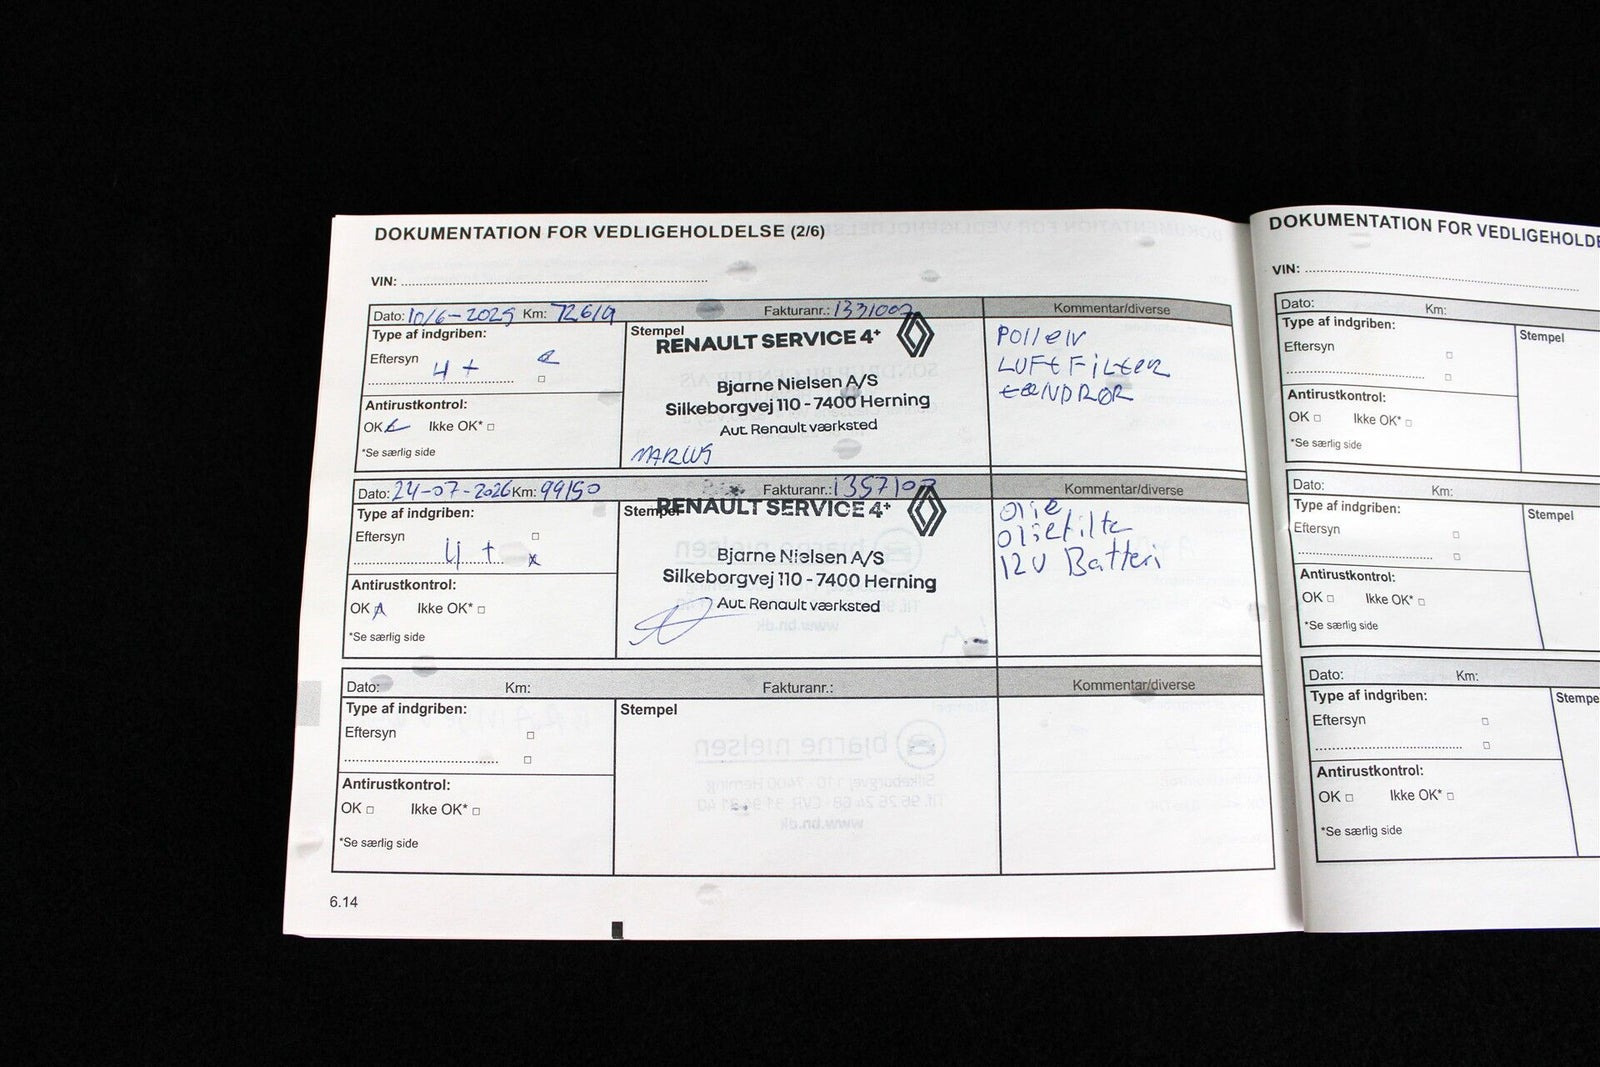 DOKUMENTATION FOR VEDLIGEHOLDELSE (2/6)
VIN:
Dato: 10/6-2025 Km: 72619 Fakturanr.: 1331007 Kommentar/diverse
Type af indgriben:
Eftersyn
4 +
Antirustkontrol:
OK Ikke OK*
*Se særlig side
Stempel
RENAULT SERVICE 4+
Bjarne Nielsen A/S
Silkeborgvej 110 - 7400 Herning
Aut. Renault værksted
MARCUS
POllEN
LUFtFiLtER
tæNDRØR
Dato: 24-07-2026 Km: 99150 Fakturanr.: Kommentar/diverse
Type af indgriben:
Eftersyn
4 +
Antirustkontrol:
OK Ikke OK*
*Se særlig side
Stempel
RENAULT SERVICE 4+
Bjarne Nielsen A/S
Silkeborgvej 110 - 7400 Herning
Aut. Renault værksted
Olie
Oliefilte
12V Batteri
Dato: Km: Fakturanr.: Kommentar/diverse
Type af indgriben:
Eftersyn
Antirustkontrol:
OK Ikke OK*
*Se særlig side
Stempel
6.14
DOKUMENTATION FOR VEDLIGEHOLDE
VIN:
Dato: Km:
Type af indgriben:
Eftersyn
Antirustkontrol:
OK Ikke OK*
*Se særlig side
Stempel
Dato: Km:
Type af indgriben:
Eftersyn
Antirustkontrol:
OK Ikke OK*
*Se særlig side
Stempel
Dato: Km:
Type af indgriben:
Eftersyn
Antirustkontrol:
OK Ikke OK*
*Se særlig side
Stempe